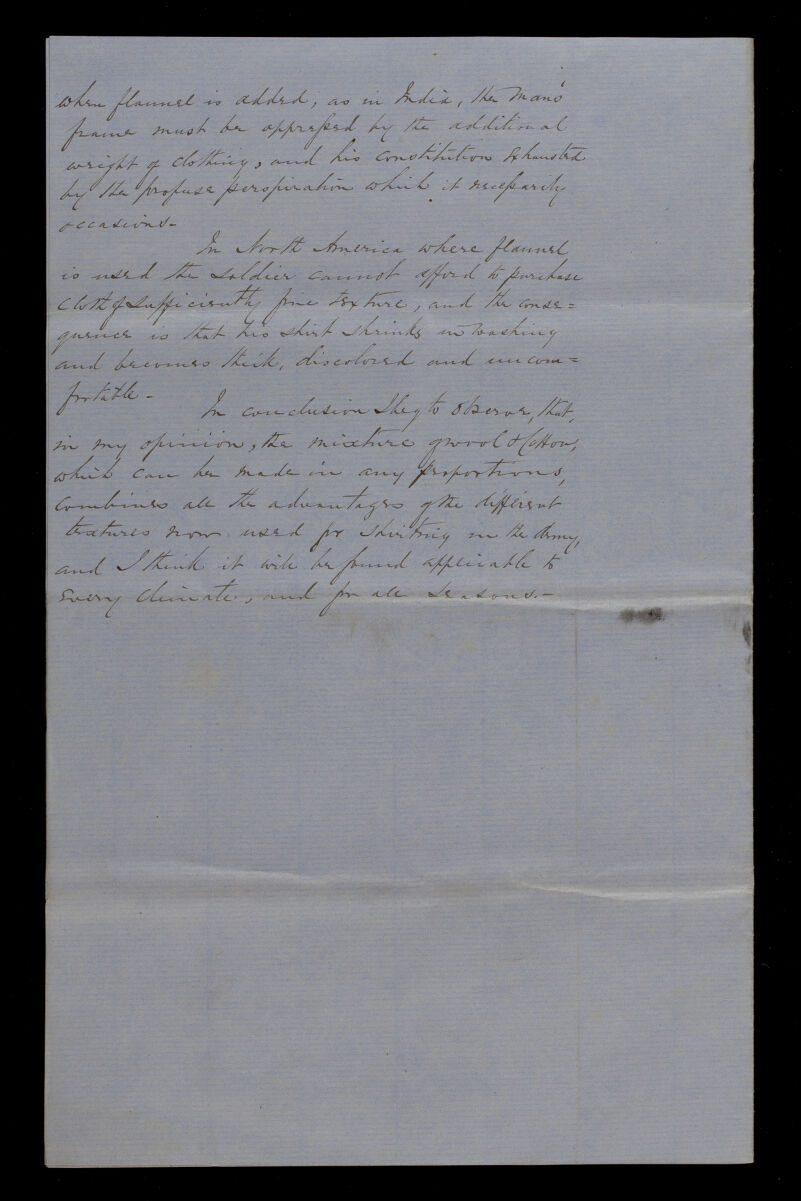 when flannel is added, as in India, the man's
frame must be oppressed by the additional
weight of clothing, and his constitution exhausted
by the profuse perspiration which it necessarily
occasions.-
In North America where flannel
is used the soldier cannot afford to purchase
cloth of sufficiently fine texture, and the conse=
quence is that his shirt shrinks in washing
and becomes thick, discolored and uncom=
fortable.-
In conclusion I beg to observe, that,
in my opinion, the mixture of wool & Cotton,
which can be made in any proportions,
combines all the advantages of the different
textures now used for shirting in the Army,
and I think it will be found applicable to
every climate, and for all seasons.-